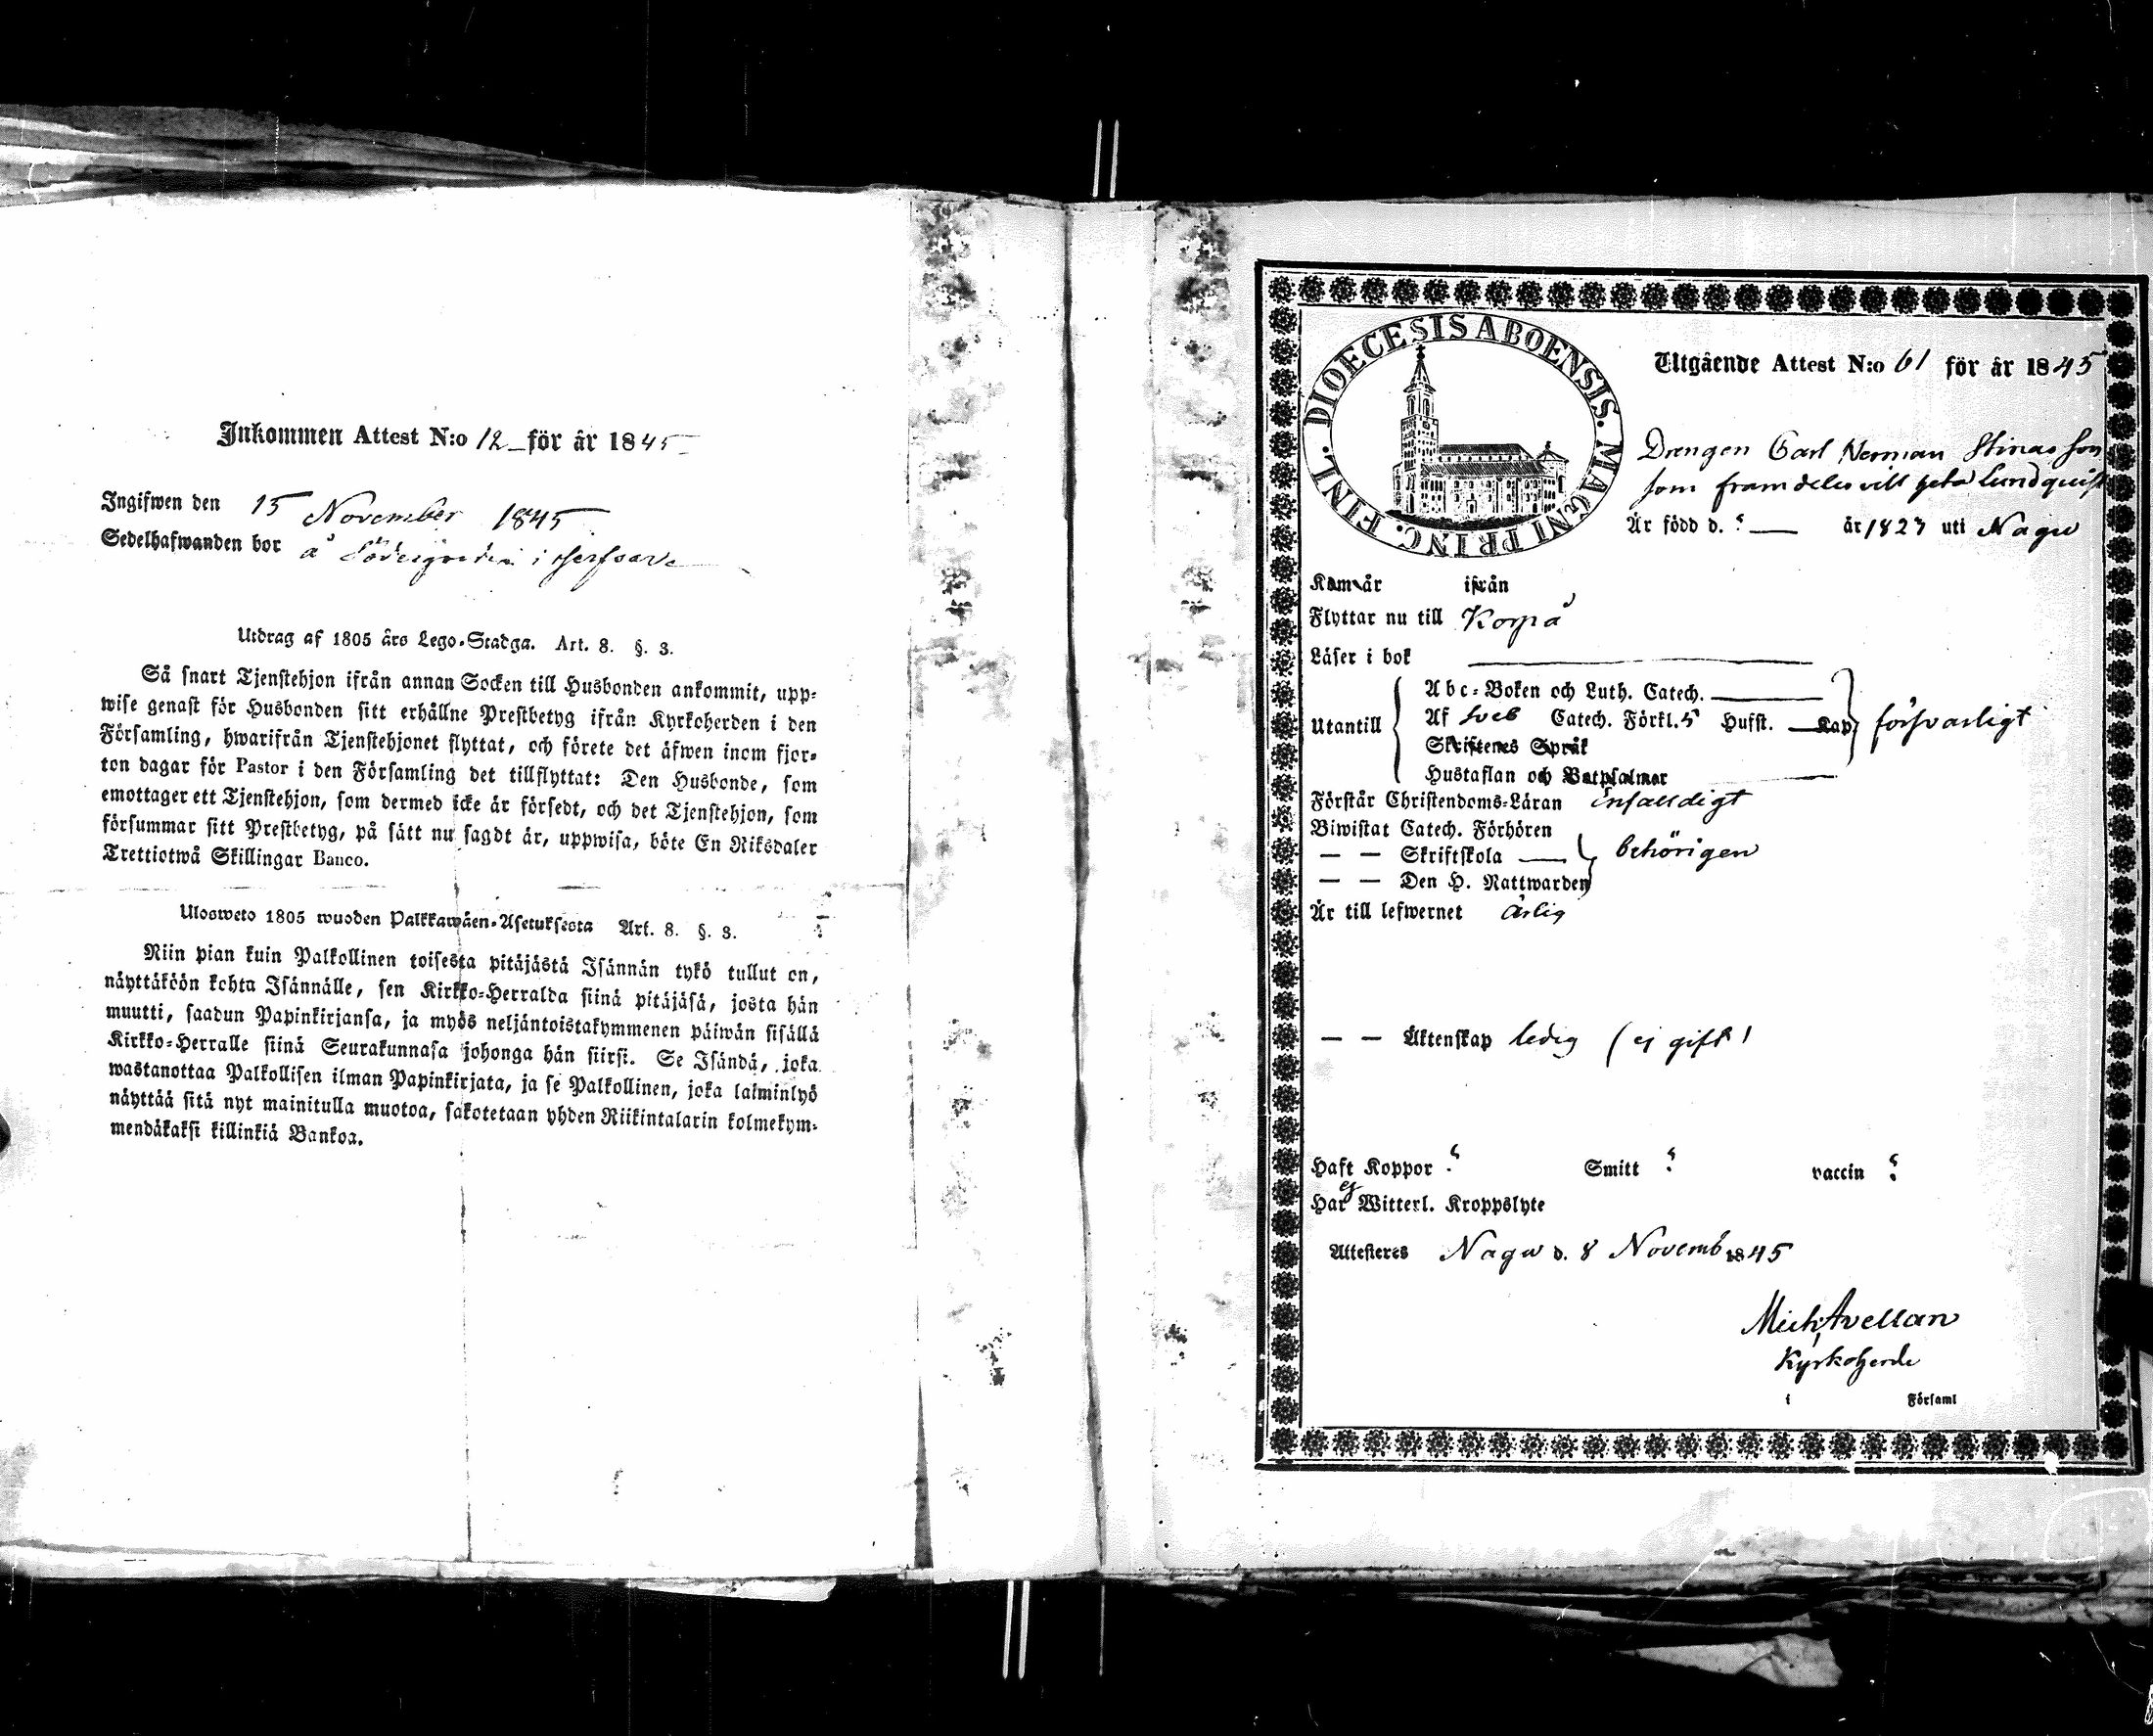 Inkommen Attest N:o 12 för år 1845
Ingifwen den 15 November 1845
Sedelhafwanden bor å Södergården i
Utdrag af 1805 års Lego-Stadga. Art. 8. §. 3.
Så snart Tjenstehjon ifrån annan Socken till Husbonden ankommit, upp-
wise genast för Husbonden sitt erhållne Prestbetyg ifrån Kyrkoherden i den
Församling, hwarifrån Tjenstehjonet flyttat, och förete det äfwen inom fjor-
ton dagar för Pastor i den Församling det tillflyttat: Den Husbonde, som
emottager ett Tjenstehjon, som dermed icke är försedt, och det Tjenstehjon, som
försummar sitt Prestbetyg, på sätt nu sagdt är, uppwisa, böte En Riksdaler
Trettiotwå Skillingar Banco.
Ulosweto 1805 wuoden Palkkawäen-Asetuksesta Art. 8. §. 3.
Niin pian kuin Palkollinen toisesta pitäjästä Isännän tykö tullut on,
näyttäköön kohta Isännälle, sen Kirkko-Herralda siinä pitäjäsä, josta hän
muutti, saadun Papinkirjansa, ja myös neljäntoistakymmenen päiwän sisällä
Kirkko-Herralle siinä Seurakunnasa johonga hän siirsi. Se Isändä, joka
wastanottaa Palkollisen ilman Papinkirjata, ja se Palkollinen, joka laiminlyö
näyttää sitä nyt mainitulla muotoa, sakotetaan yhden Riikintalarin kolmekym-
mendäkaksi killinkiä Bankoa.
DIOECESIS ABOENSIS. MAGNI PRINC. FINL.
Utgående Attest N:o 61 för år 1845
Drengen Carl Herman Stinasson
som framdeles vill heta Lundquist
Är född d. ? — år 1823 uti Nagu
Kom år ifrån
Flyttar nu till Korpå
Läser i bok
Abc-Boken och Luth. Catech.
Utantill Af Sveb Catech. Förkl. 5 Hufst. Kap försvarligt
Skriftenes Språk
Hustaflan och Botpsalmer
Förstår Christendoms-Läran enfaldigt
Biwistat Catech. Förhören
— — Skriftskola behörigen
— — Den H. Nattwarden
Är till lefwernet ärlig
— — Äktenskap ledig (ej gift)
Haft Koppor ? Smitt ? vaccin ?
Har ej Witterl. Kroppslyte
Attesteres Nagu d. 8 Novemb 1845
Mich Avellan
Kyrkoherde
i Församl